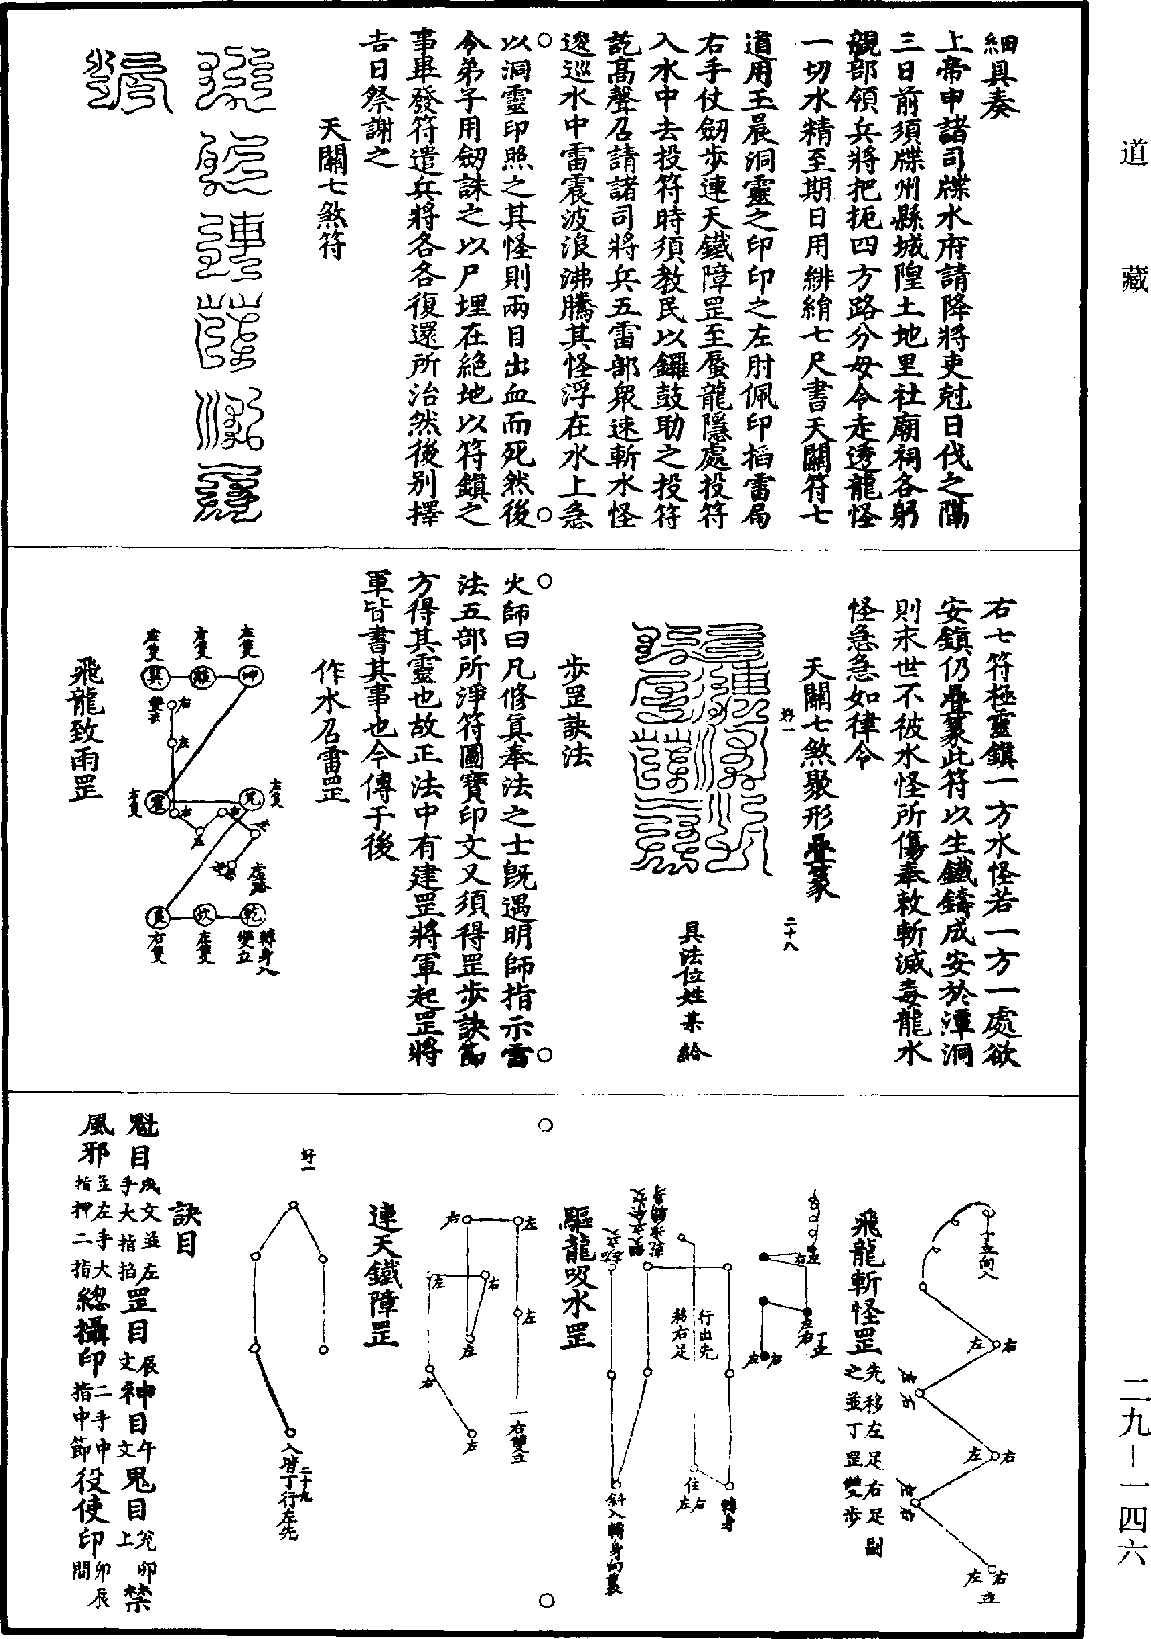 道藏
細具奏
上帝申諸司牒水府請降將吏尅日伐之隔
三日前須牒州縣城隍土地里社廟祠各躬
親部領兵將把扼四方路分毋令走透龍怪
一切水精至期日用緋綃七尺書天關符七
道用玉晨洞靈之印印之左肘佩印掐雷局
右手仗劒步連天鐵障罡至蜃龍隱處投符
入水中去投符時須教民以鑼鼓助之投符
訖高聲召請諸司將兵五雷部衆速斬水怪
逡巡水中雷震波浪沸騰其怪浮在水上急
以洞靈印照之其怪則兩目出血而死然後
令弟子用劒誅之以尸埋在絕地以符鎮之
事畢發符遣兵將各各復還所治然後别擇
吉日祭謝之
天關七煞符
右七符極靈鎮一方水怪若一方一處欲
安鎮仍疊篆此符以生鐵鑄成安於潭洞
則永世不被水怪所傷奉敕斬滅毒龍水
怪急急如律令
天關七煞聚形疊篆
二十八
具法位姓某給
步罡訣法
火師曰凡修真奉法之士旣遇明師指示雷
法五部所淨符圖寶印文又須得罡步訣節
方得其靈也故正法中有建罡將軍起罡將
軍皆書其事也今傳于後
作水召雷罡
左雙
右雙
左雙
坤
離
巽
雙立
右
左
震
兌
右雙
左雙
右
左
艮
坎
乾
右雙
左雙
雙立
轉身入
飛龍致雨罡
右
左
右
左
右
左
立
飛龍斬怪罡
先移左足右足副
之並丁罡雙步
左右
丁立
左右
行出先
移右足
轉身
住
左右
斜入轉身向裏
驅龍吸水罡
左
右
左
一右雙立
右
左
左
右
左
連天鐵障罡
入皆丁行左先
二十九
訣目
魁目戌文並左手大指掐罡目辰文神目午文鬼目
風邪並左手大指押二指總攝印二手中指中節役使印卯辰間
二九－一四六